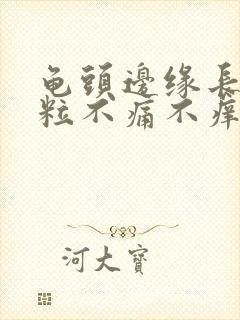 龟頭邊缘長
粒不痛不痒
河大寶